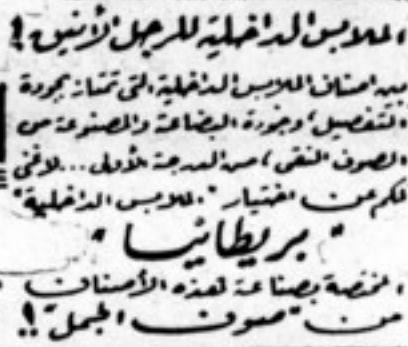 الملابس الداخلية للرجل الأنيق !
بين اصناف الملابس الداخلية التى تمتاز بجودة
التفصيل، وجودة البضاعة والمصنوعة من
الصوف النقى، من الدرجة الأولى ... لا غنى
لكم عن اختيار "الملابس الداخلية"
" بريطانيا "
المختصة بصناعة هذه الأصناف
من " صوف الجمل " !!